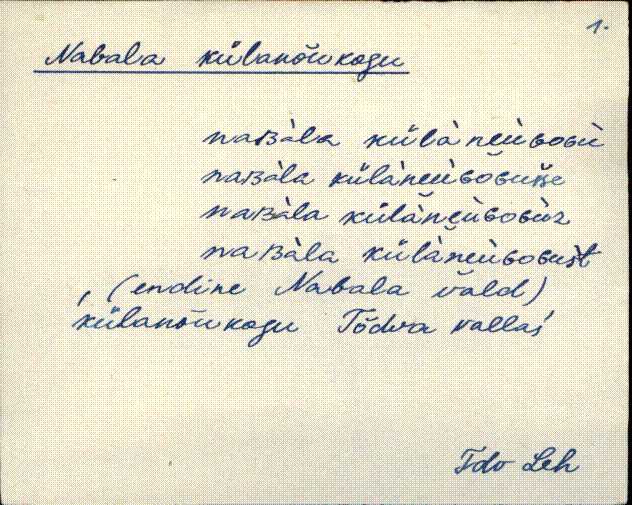 1.
Nabala külanõukogu
naʙàla külàneùɢoɢù
naʙàla külàneùɢoɢuʙe
naʙàla külàneùɢoɢùz
naʙàla külàneùɢoɢust
, (endine Nabala vald)
külanõukogu Tõdva vallas
Ido Leh